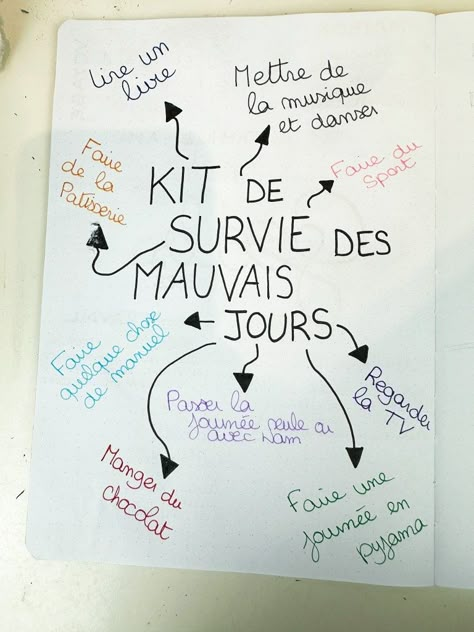 Lire un
livre
Mettre de
la musique
et danser
Faire de
la
Patisserie
Faire du
Sport
KIT DE
SURVIE DES
MAUVAIS
JOURS
Faire
quelque chose
de manuel
Passer la
journée seule ou
avec
Regarder
la TV
Manger du
chocolat
Faire une
journée en
pyjama